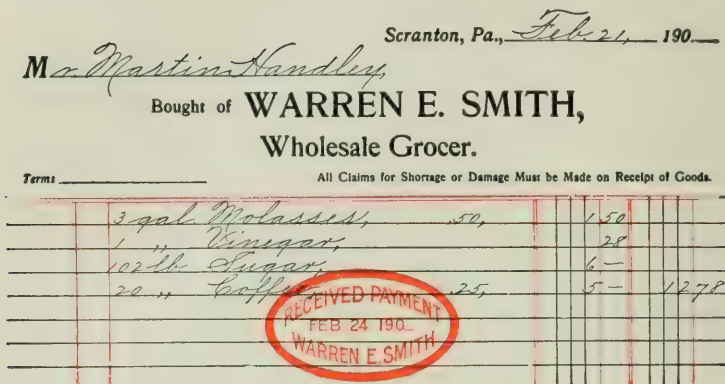 Scranton, Pa., Feb. 21, 190
Mr. Martin Handley,
Bought of WARREN E. SMITH,
Wholesale Grocer.
Terms All Claims for Shortage or Damage Must be Made on Receipt of Goods.
3 gal Molasses, .50, 1 50
1 " Vinegar, 28
102 lb Sugar, 6 —
20 " Coffee, .25, 5 — 12 78
RECEIVED PAYMENT
FEB 24 190
WARREN E. SMITH